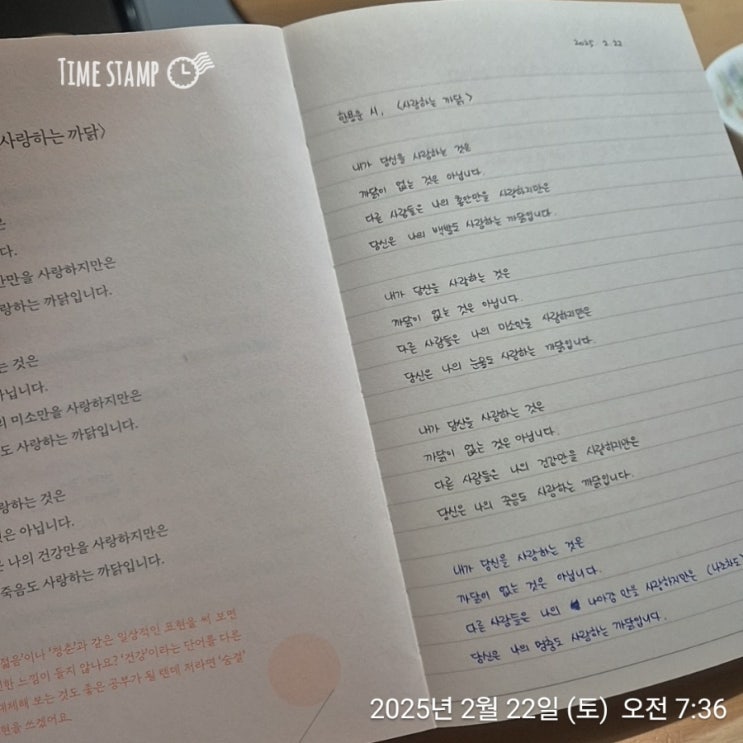 TIME STAMP
사랑하는 까닭〉
은
다.
안만을 사랑하지만은
랑하는 까닭입니다.
는 것은
아닙니다.
의 미소만을 사랑하지만은
도 사랑하는 까닭입니다.
랑하는 것은
것은 아닙니다.
은 나의 건강만을 사랑하지만은
죽음도 사랑하는 까닭입니다.
젊음'이나 '청춘'과 같은 일상적인 표현을 써 보면
한 느낌이 들지 않나요? '건강'이라는 단어를 다른
대체해 보는 것도 좋은 공부가 될 텐데 저라면 '숨결'
현을 쓰겠어요.
2025 2. 22
한용운 시, 〈사랑하는 까닭〉
내가 당신을 사랑하는 것은
까닭이 없는 것은 아닙니다.
다른 사람들은 나의 홍안만을 사랑하지만은
당신은 나의 백발도 사랑하는 까닭입니다.
내가 당신을 사랑하는 것은
까닭이 없는 것은 아닙니다.
다른 사람들은 나의 미소만을 사랑하지만은
당신은 나의 눈물도 사랑하는 까닭입니다.
내가 당신을 사랑하는 것은
까닭이 없는 것은 아닙니다.
다른 사람들은 나의 건강만을 사랑하지만은
당신은 나의 죽음도 사랑하는 까닭입니다.
내가 당신을 사랑하는 것은
까닭이 없는 것은 아닙니다.
다른 사람들은 나의 만을 사랑하지만은
당신은 나의 멈춤도 사랑하는 까닭입니다.
2025년 2월 22일 (토) 오전 7:36